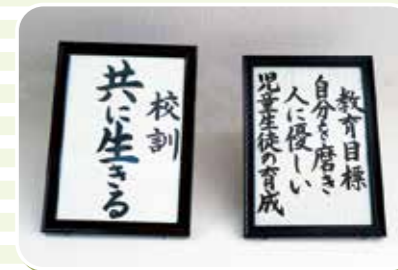 校訓
共に生きる
教育目標
自分を磨き
人に優しい
児童生徒の育成